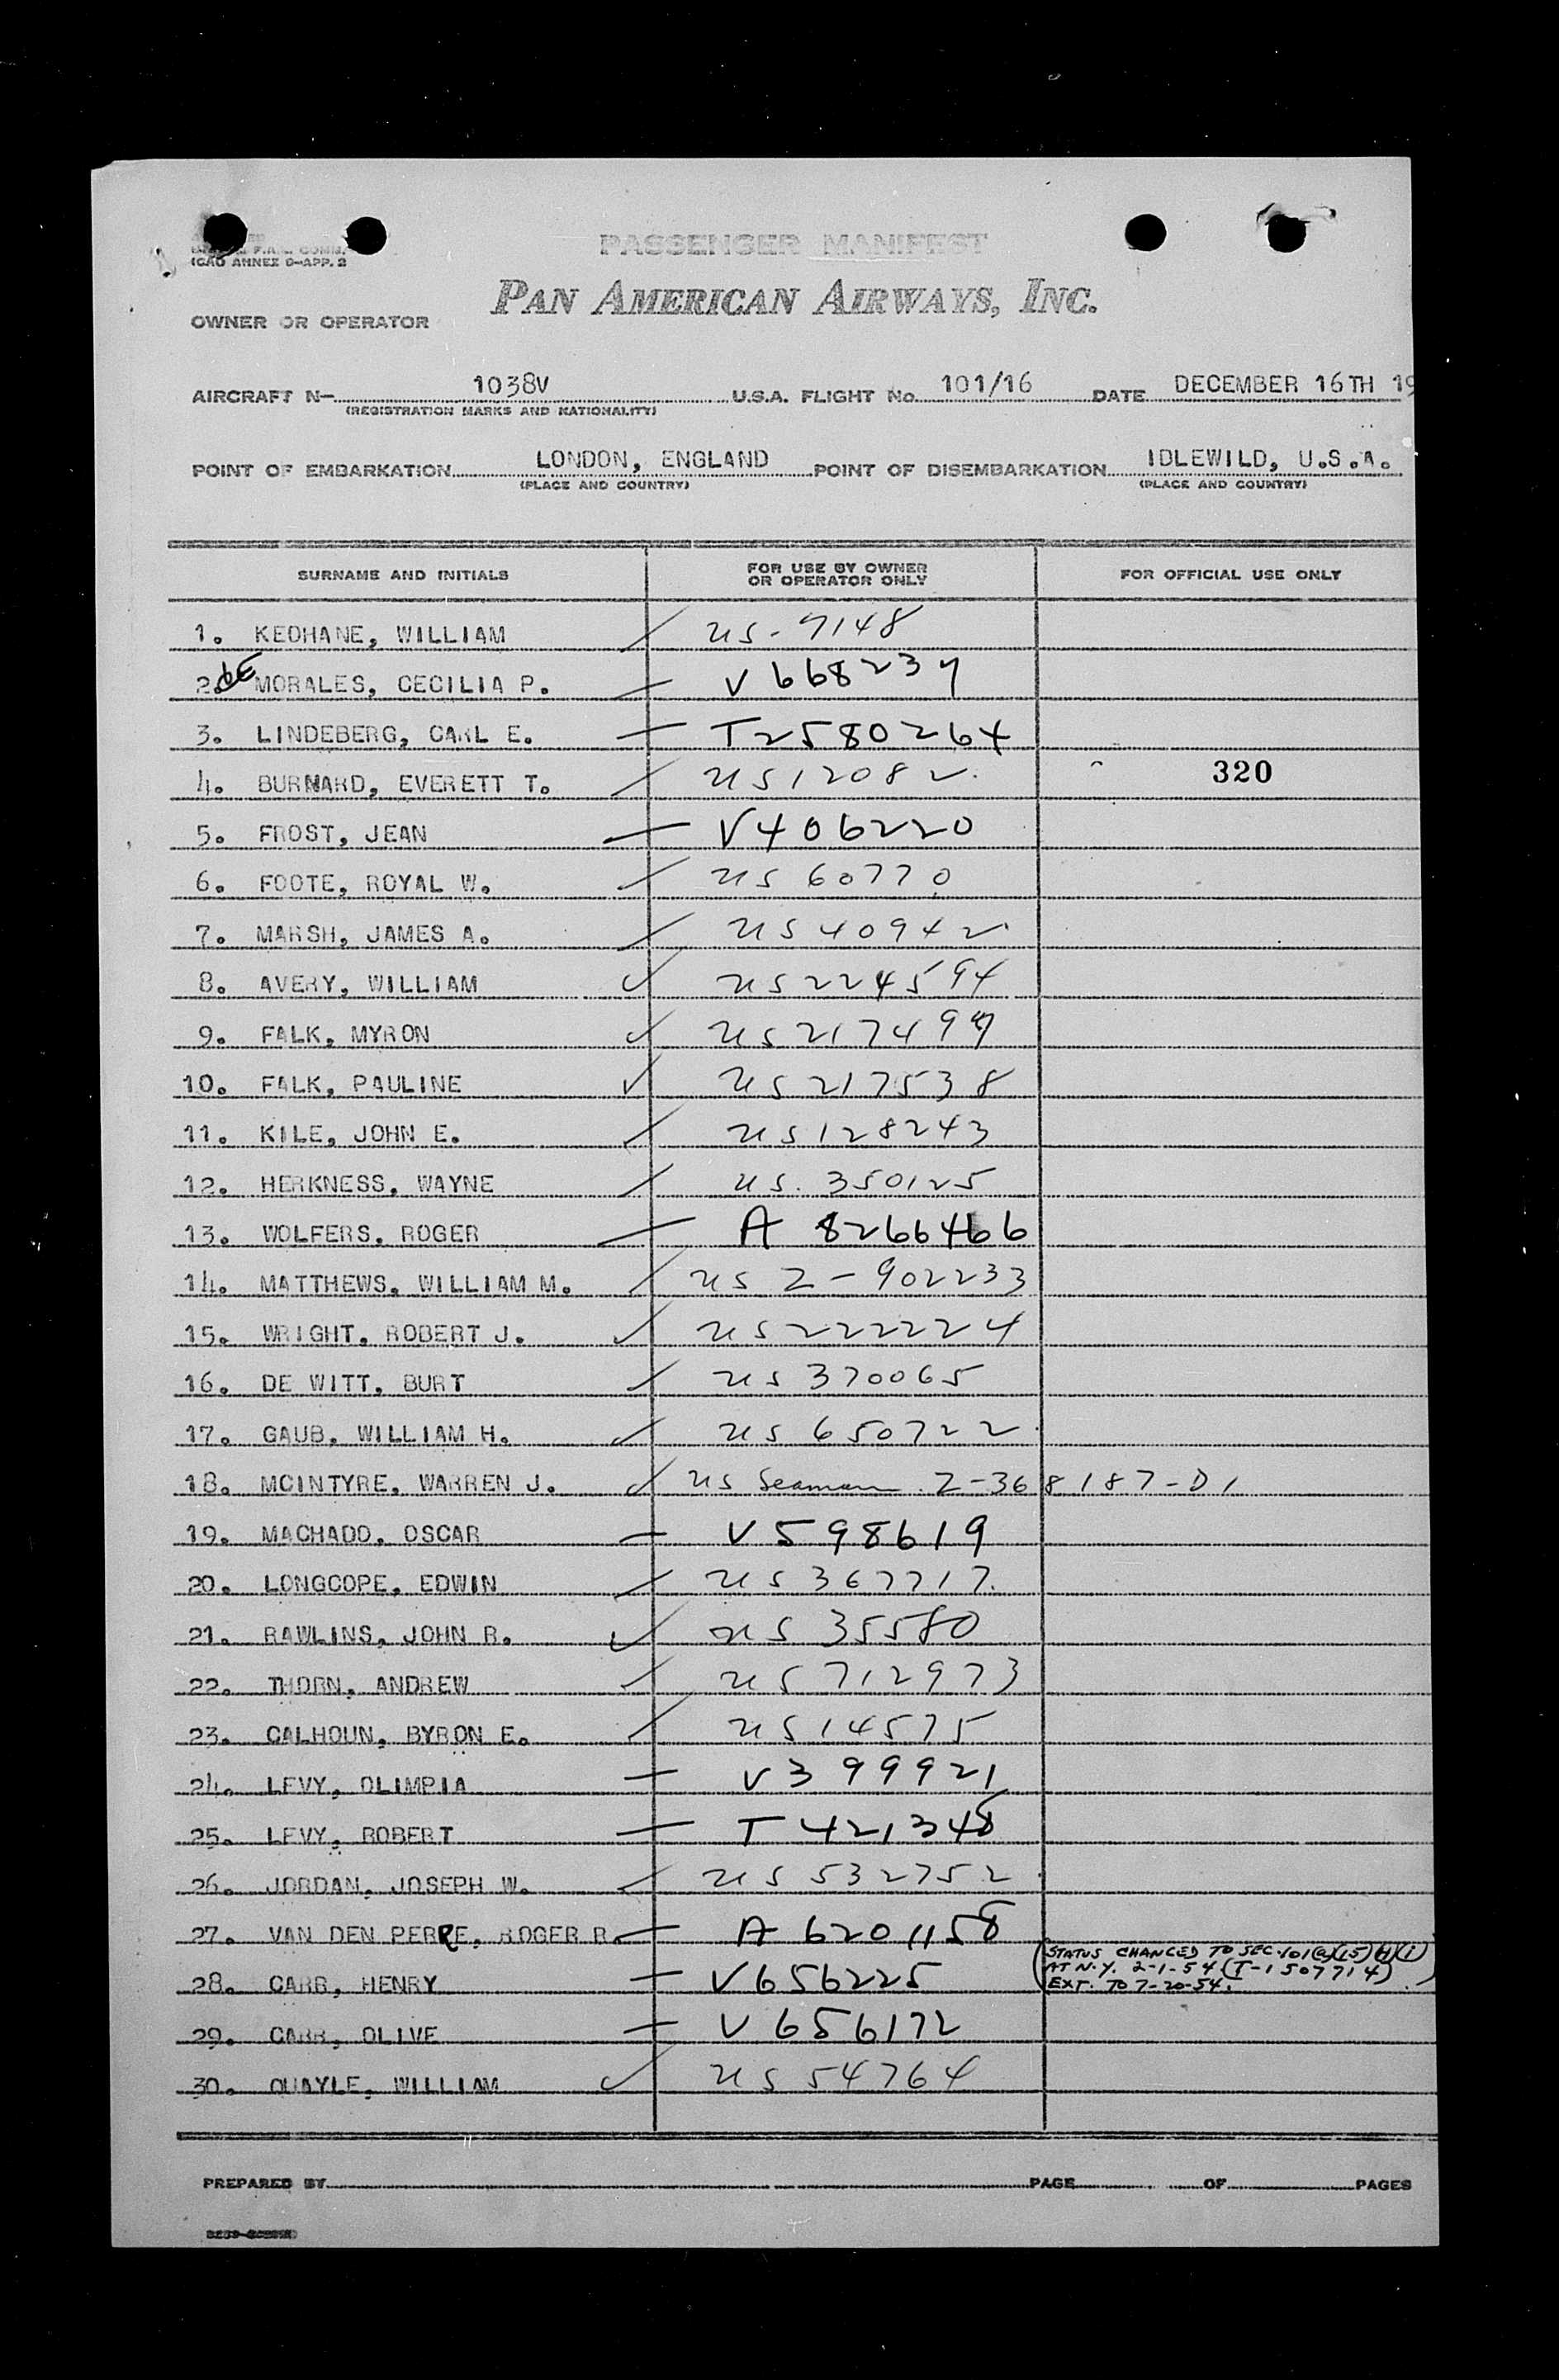 PASSENGER MANIFEST
ICAO ANNEX 9-APP. 2
PAN AMERICAN AIRWAYS, INC.
OWNER OR OPERATOR
AIRCRAFT N- 1038V U.S.A. FLIGHT No. 101/16 DATE DECEMBER 16TH 19
(REGISTRATION MARKS AND NATIONALITY)
POINT OF EMBARKATION LONDON, ENGLAND POINT OF DISEMBARKATION IDLEWILD, U.S.A.
(PLACE AND COUNTRY) (PLACE AND COUNTRY)
SURNAME AND INITIALS FOR USE BY OWNER OR OPERATOR ONLY FOR OFFICIAL USE ONLY
1. KEOHANE, WILLIAM US-7148
2. de MORALES, CECILIA P. V668237
3. LINDEBERG, CARL E. T2580264
4. BURNARD, EVERETT T. US12082 320
5. FROST, JEAN V406220
6. FOOTE, ROYAL W. US 60770
7. MARSH, JAMES A. US40942
8. AVERY, WILLIAM US224594
9. FALK, MYRON US217499
10. FALK, PAULINE US217538
11. KILE, JOHN E. US128243
12. HERKNESS, WAYNE US. 350125
13. WOLFERS, ROGER A 8266466
14. MATTHEWS, WILLIAM M. US Z-902233
15. WRIGHT, ROBERT J. US222224
16. DE WITT, BURT US370065
17. GAUB, WILLIAM H. US 650722
18. MCINTYRE, WARREN J. US Seaman Z-368187-D1
19. MACHADO, OSCAR V598619
20. LONGCOPE, EDWIN US367717
21. RAWLINS, JOHN R. US 35580
22. THORN, ANDREW US712973
23. CALHOUN, BYRON E. US14575
24. LEVY, OLIMPIA V399921
25. LEVY, ROBERT T421348
26. JORDAN, JOSEPH W. US 532752
27. VAN DEN PERRE, ROGER R. A 6201158
STATUS CHANGED TO SEC.101(a)(15)(H)(i)
AT N.Y. 2-1-54 (T-1507714)
28. CARR, HENRY V656225 EXT. TO 7-20-54.
29. CARR, OLIVE V656172
30. QUAYLE, WILLIAM US 54764
PREPARED BY PAGE OF PAGES